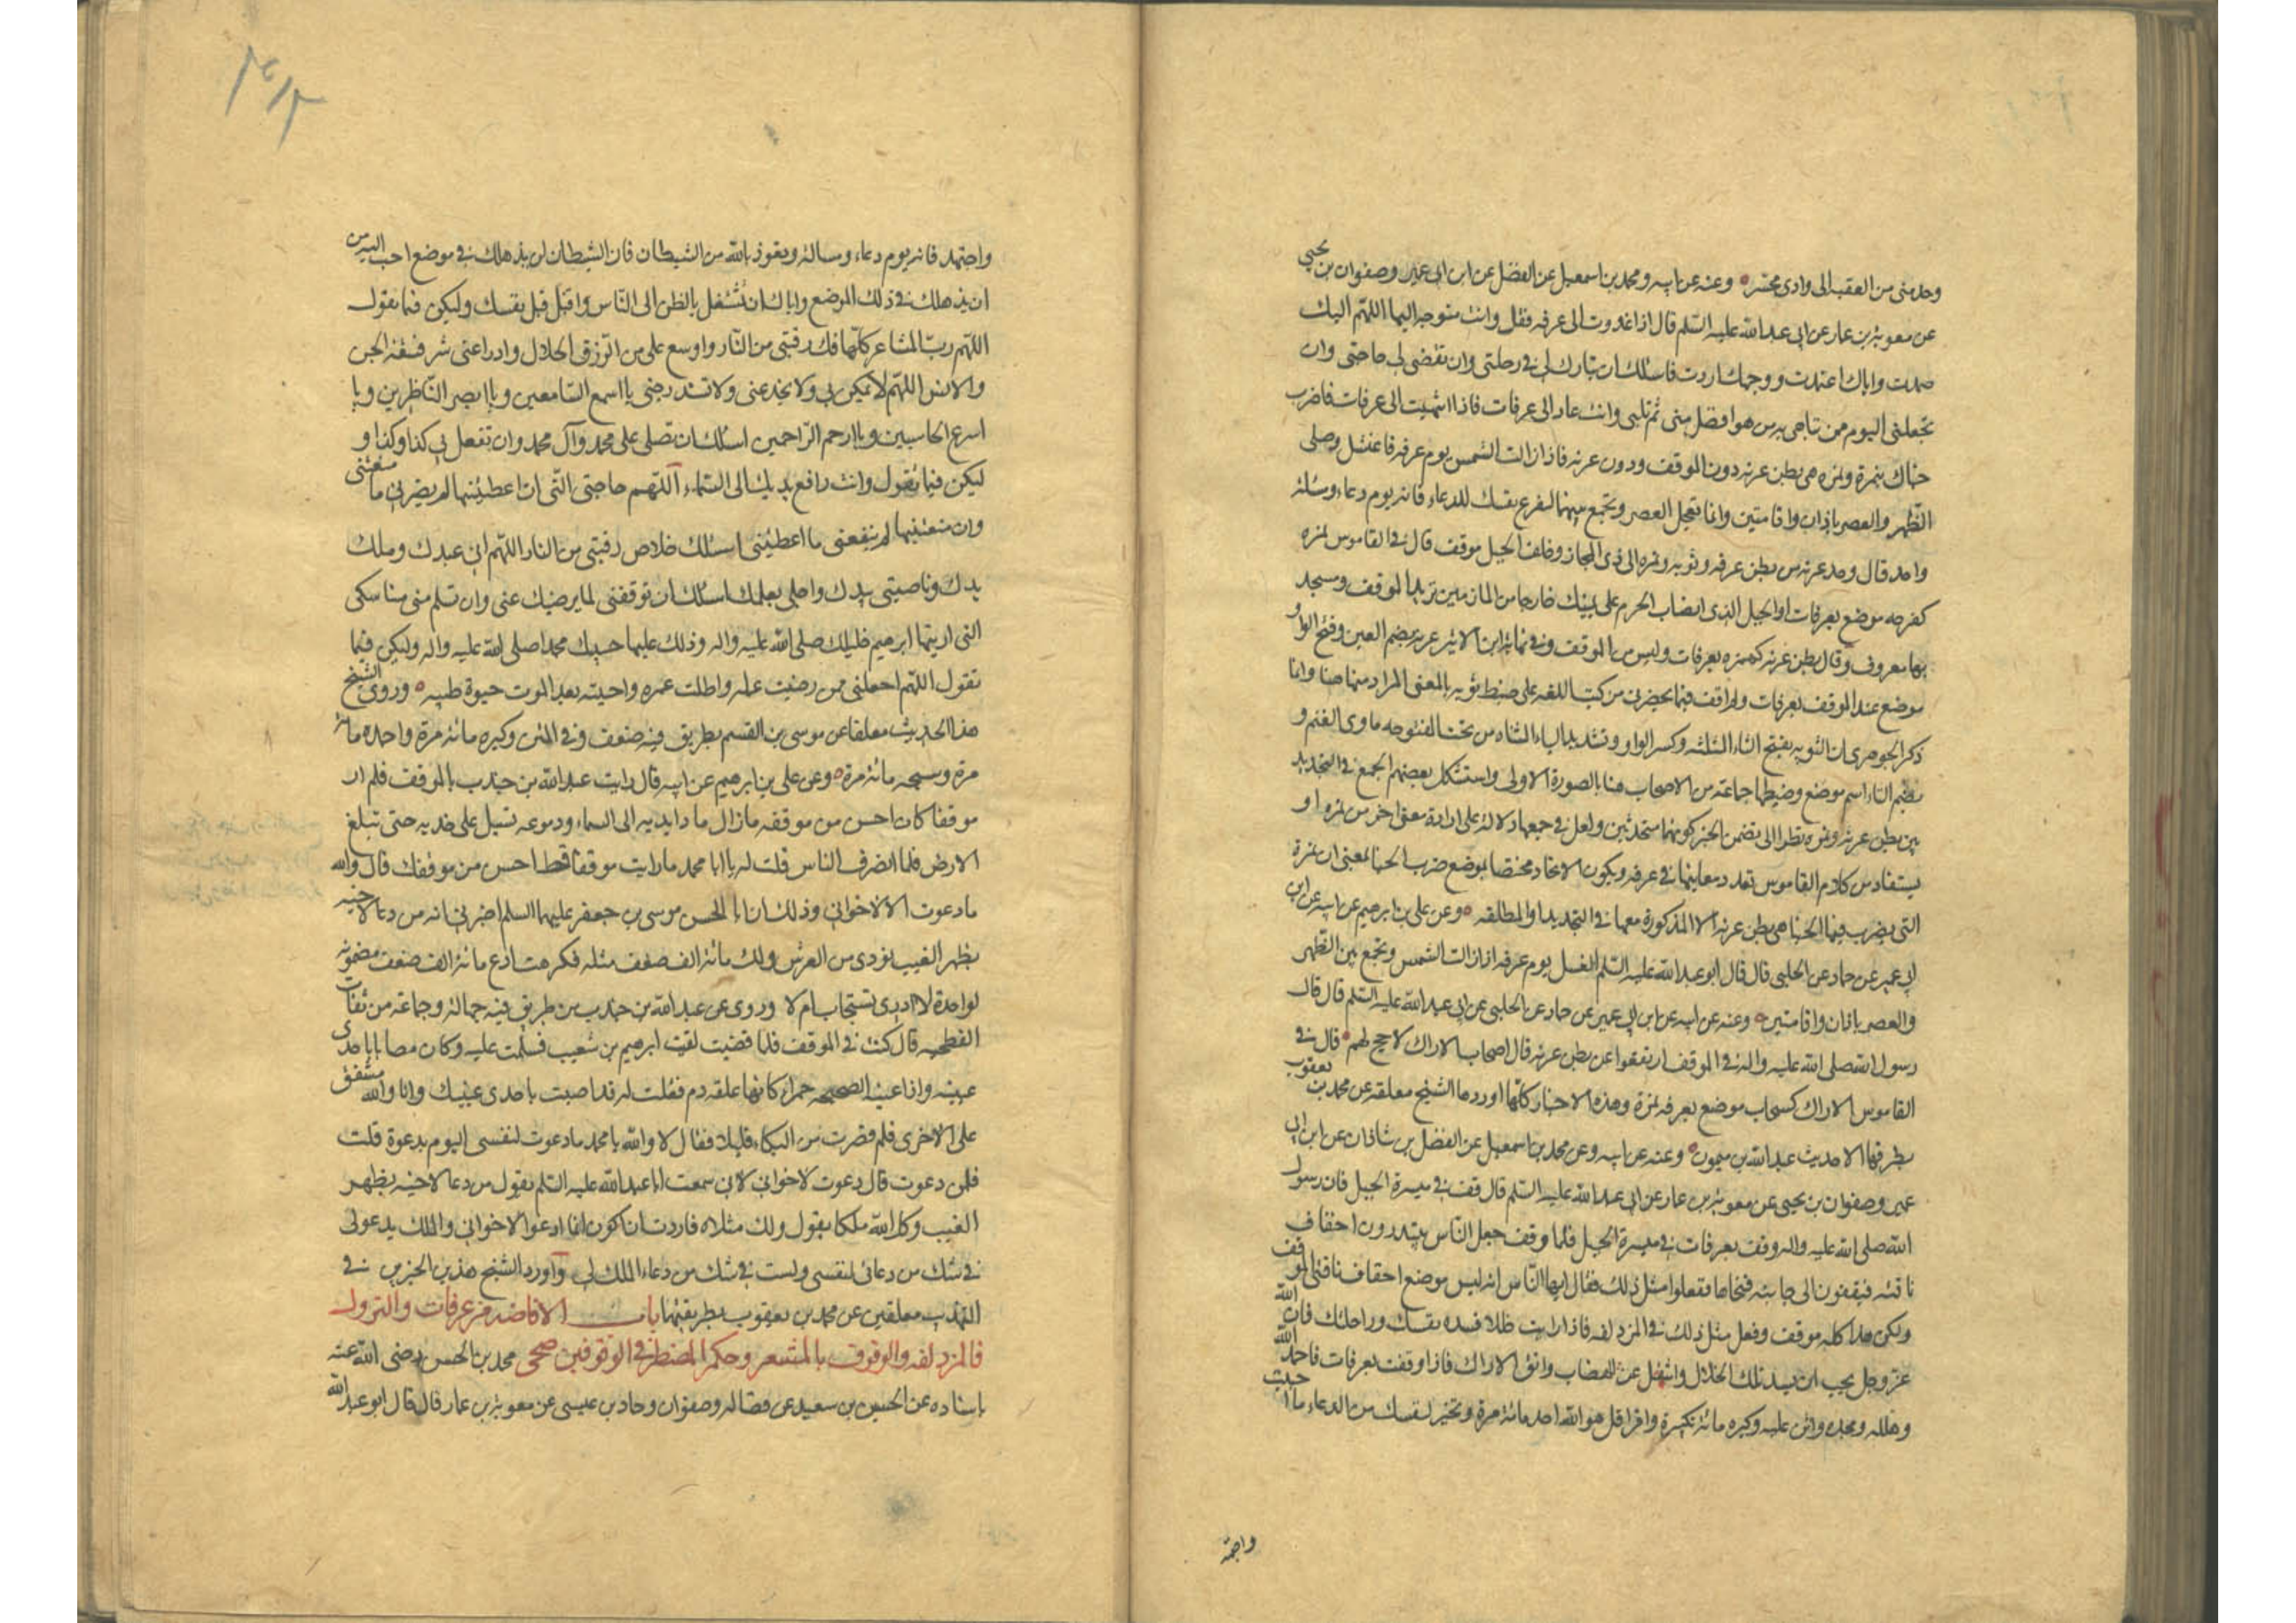 وحد منى من العقبة الى وادى محسّر وعنه عن ابيه ومحمد بن اسمعيل عن الفضل عن ابن ابى عمير وصفوان بن يحيى
عن معوية بن عمار عن ابى عبد الله عليه السّلم قال اذا غدوت الى عرفه فقل وانت متوجه اليها اللهّم اليك
صمدت واياك اعتمدت ووجهك اردت فاسئلك ان تبارك لى فى رحلتى وان تقضى لى حاجتى وان
تجعلنى اليوم ممن تباهى به من هو افضل منى ثم تلبى وانت غاد الى عرفات فاذا انتهيت الى عرفات فاضرب
خباك بنمرة ونمره هى بطن عرنه دون الموقف ودون عرنه فاذا زالت الشمس يوم عرفه فاغتسل وصلى
الظّهر والعصر باذان واقامتين وانما تعجل العصر وتجمع بينهما لتفرغ نفسك للدعاء فانه يوم دعاء ومسئلة
واحد قال وحد عرنه من بطن عرفه وثويه ونمره الى ذى المجاز وخلف الجبل موقف قال فى القاموس نمره
كفرحه موضع بعرفات او الجبل الذى انصاب الحرم على يمينك خارجا من المازمين تريد الموقف ومسجد
بها معروف وقال بطن عرنه كهمزه بعرفات وليس من الموقف وفى نهاية ابن الاثير عرنه بضم العين وفتح الراء
موضع عند الموقف بعرفات ولم اقف فيما يحضرنى من كتب اللغه على ضبط ثويه بالمعنى المراد منها هنا وانما
ذكر الجوهرى ان الثويه بفتح الثاء المثلثه وكسر الواو وتشديد الياء المثناه من تحت المفتوحه ماوى الغنم و
بضم الثاء اسم موضع وضبطها جماعة من الاصحاب هنا بالصورة الاولى واستشكل بعضهم الجمع فى التحديد
بين بطن عرنه ونمره نظرا الى تضمن الخبر كونهما متحدتين ولعل فى جمعها دلالة على ارادة معنى اخر من نمره او
يستفاد من كلام القاموس تعدد معانيها فى عرفه ويكون الاتحاد مختصا بموضع ضرب الخبا بمعنى ان نمرة
التى يضرب فيها الخباء هى بطن عرنه لا المذكورة معها فى التحديد او المطلقه وعن على بن ابراهيم عن ابيه عن ابن
ابى عمير عن حماد عن الحلبى قال قال ابو عبد الله عليه السّلم الغسل يوم عرفه اذا زالت الشمس وتجمع بين الظهر
والعصر باذان واقامتين وعنه عن ابيه عن ابن ابى عمير عن حماد عن الحلبى عن ابى عبد الله عليه السّلم قال قال
رسول الله صلى الله عليه واله فى الموقف ارتفعوا عن بطن عرنه قال اصحاب الاراك لا حج لهم قال فى
القاموس الاراك كسحاب موضع بعرفه نمرة وهذه الاخبار كلّها اوردها الشيخ معلقه عن محمد بن يعقوب
بطرقها الا حديث عبد الله بن ميمون وعنه عن ابيه وعن محمد بن اسمعيل عن الفضل بن شاذان عن ابن ابى
عمير وصفوان بن يحيى عن معوية بن عمار عن ابى عبد الله عليه السّلم قال قف فى ميسرة الجبل فان رسول
الله صلى الله عليه واله وقف بعرفات فى ميسرة الجبل فلما وقف جعل النّاس يبتدرون اخفاف
ناقته فيقفون الى جانبه فنحاها ففعلوا مثل ذلك فقال ايها النّاس انه ليس موضع اخفاف ناقتى الموقف
ولكن هذا كله موقف وفعل مثل ذلك فى المزدلفه فاذا رايت خللا فسده بنفسك وراحلتك فان الله
عز وجل يحب ان يسد تلك الخلال وانتقل عن الهضاب واتق الاراك فاذا وقفت بعرفات فاحمد الله
وهلله ومجده واثن عليه وكبره مائة تكبيرة واقرا قل هو الله احد مائة مرة وتخير لنفسك من الدعاء ما احببت
واجتهد
واجتهد فانه يوم دعاء ومسالة وتعوذ بالله من الشيطان فان الشيطان لن يذهلك فى موضع احب اليه من
ان يذهلك فى ذلك الموضع واياك ان تشتغل بالنظر الى النّاس واقبل قبل نفسك وليكن فيما تقول
اللهّم ربّ المشاعر كلّها فك رقبتى من النّار واوسع على من الرّزق الحلال وادرا عنى شر فسقة الجن
والانس اللهّم لا تمكر بى ولا تخدعنى ولا تستدرجنى يا اسمع السّامعين ويا ابصر النّاظرين ويا
اسرع الحاسبين ويا ارحم الرّاحمين اسئلك ان تصلى على محمد وآل محمد وان تفعل بى كذا وكذا و
ليكن فيما تقول وانت رافع يديك الى السّماء اللّهم حاجتى الّتى ان اعطيتنيها لم يضرنى ما منعتنى
وان منعتنيها لم ينفعنى ما اعطيتنى اسئلك خلاص رقبتى من النار اللهّم انى عبدك وملك
يدك وناصيتى بيدك واجلى بعلمك اسئلك ان توفقنى لما يرضيك عنى وان تسلم منى مناسكى
التى اريتها ابرهيم خليلك صلى الله عليه واله وذلك عليها حبيبك محمدا صلى الله عليه واله وليكن فيما
تقول اللهّم اجعلنى ممن رضيت عمله واطلت عمره واحييته بعد الموت حيوة طيبه وروى الشيخ
هذا الحديث معلقا عن موسى بن القسم بطريق فيه ضعف وفى المتن وكبره مائة مرة واحمده مائة
مرة وسبحه مائة مرة وعن على بن ابرهيم عن ابيه قال رايت عبد الله بن جندب بالموقف فلم ار
موقفا كان احسن من موقفه مازال مادا يديه الى السماء ودموعه تسيل على خديه حتى تبلغ
الارض فلما انصرف الناس قلت له يا ابا محمد ما رايت موقفا قط احسن من موقفك قال والله
ما دعوت الا لاخوانى وذلك ان ابا الحسن موسى بن جعفر عليهما السلم اخبرنى انه من دعا لاخيه
بظهر الغيب نودى من العرش ولك مائة الف ضعف مثله فكرهت ان ادع مائة الف ضعف مضمونه
لواحدة لا ادرى تستجاب ام لا وروى عن عبد الله بن جندب من طريق فيه جهالة وجماعة من ثقات
الفطحيه قال كنت فى الموقف فلما افضت لقيت ابرهيم بن شعيب فسلّمت عليه وكان مصابا باحدى
عينيه واذا عينه الصحيحه حمراء كانها علقه دم فقلت له قد اصبت باحدى عينيك وانا والله مشفق
على الاخرى فلو قصرت من البكاء قليلا فقال لا والله يا محمد ما دعوت لنفسى اليوم بدعوة قلت
فلمن دعوت قال دعوت لاخوانى لانى سمعت ابا عبد الله عليه السّلم يقول من دعا لاخيه بظهر
الغيب وكل الله ملكا يقول ولك مثلاه فاردت ان اكون انما ادعوا لاخوانى والملك يدعو لى
فى شك من دعائى لنفسى ولست فى شك من دعاء الملك لى واورد الشيخ هذين الخبرين فى
التهذيب معلقين عن محمد بن يعقوب بطريقيهما باب الافاضه من عرفات والنزول
فى المزدلفه والوقوف بالمشعر وحكم المضطر فى الوقوفين صحى محمد بن الحسن رضى الله عنه
باسناده عن الحسين بن سعيد عن فضاله وصفوان وحماد بن عيسى عن معوية بن عمار قال قال ابو عبد الله